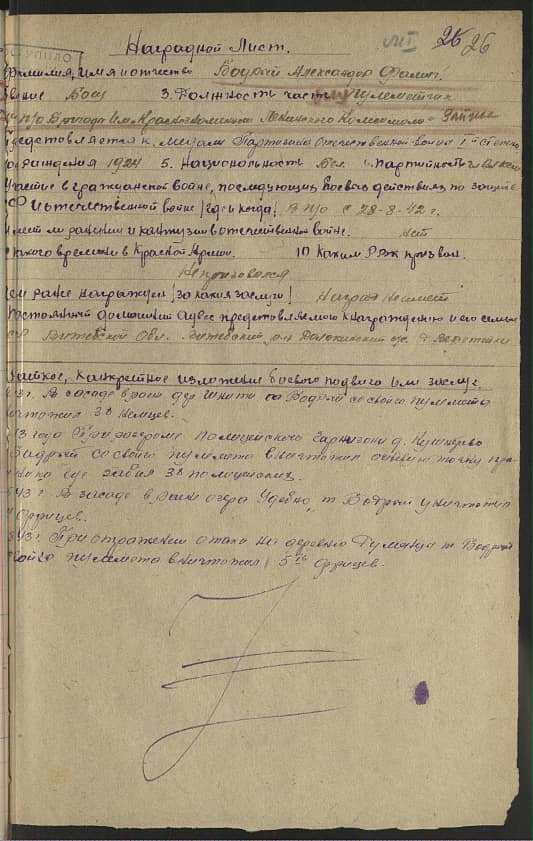 Наградной Лист.
26 26
Фамилия, имя и отчество Бодрый Александр
звание Боец 3. Должность часть пулеметчик
п/о Бригада Им. Краснознаменного Ленинского Комсомола
Представляется к медали Партизана Отечественной войны I степени
рождения 1924 5. Национальность Бел. Партийность
участие в гражданской войне, последующих боевых действиях по защите
и отечественной войне /где и когда/ в п/о с 28-8-42 г.
имеет ли ранения и контузии в отечественной войне. нет
с какого времени в Красной Армии. 10 Каким РВК призван.
Не призывался
чем ранее награжден /за какие заслуги/ Наград не имеет
постоянный домашний адрес представляемого к награждению и его семьи
Витебской Обл. р-н с/с д.
Краткое, конкретное изложение боевого подвига или заслуг.
43 г. В засаде в районе дер. тов Бодрый со своего пулемета
уничтожил 3х немцев.
43 года При разгроме полицейского гарнизона д.
Бодрый со своего пулемета уничтожил огневую точку
где убил 3х полицейских.
43 г. В засаде в районе озера т. Бодрый уничтожил
фрицев.
43 г. При отражении атаки на деревню т. Бодрый
своего пулемета уничтожил 5ть фрицев.